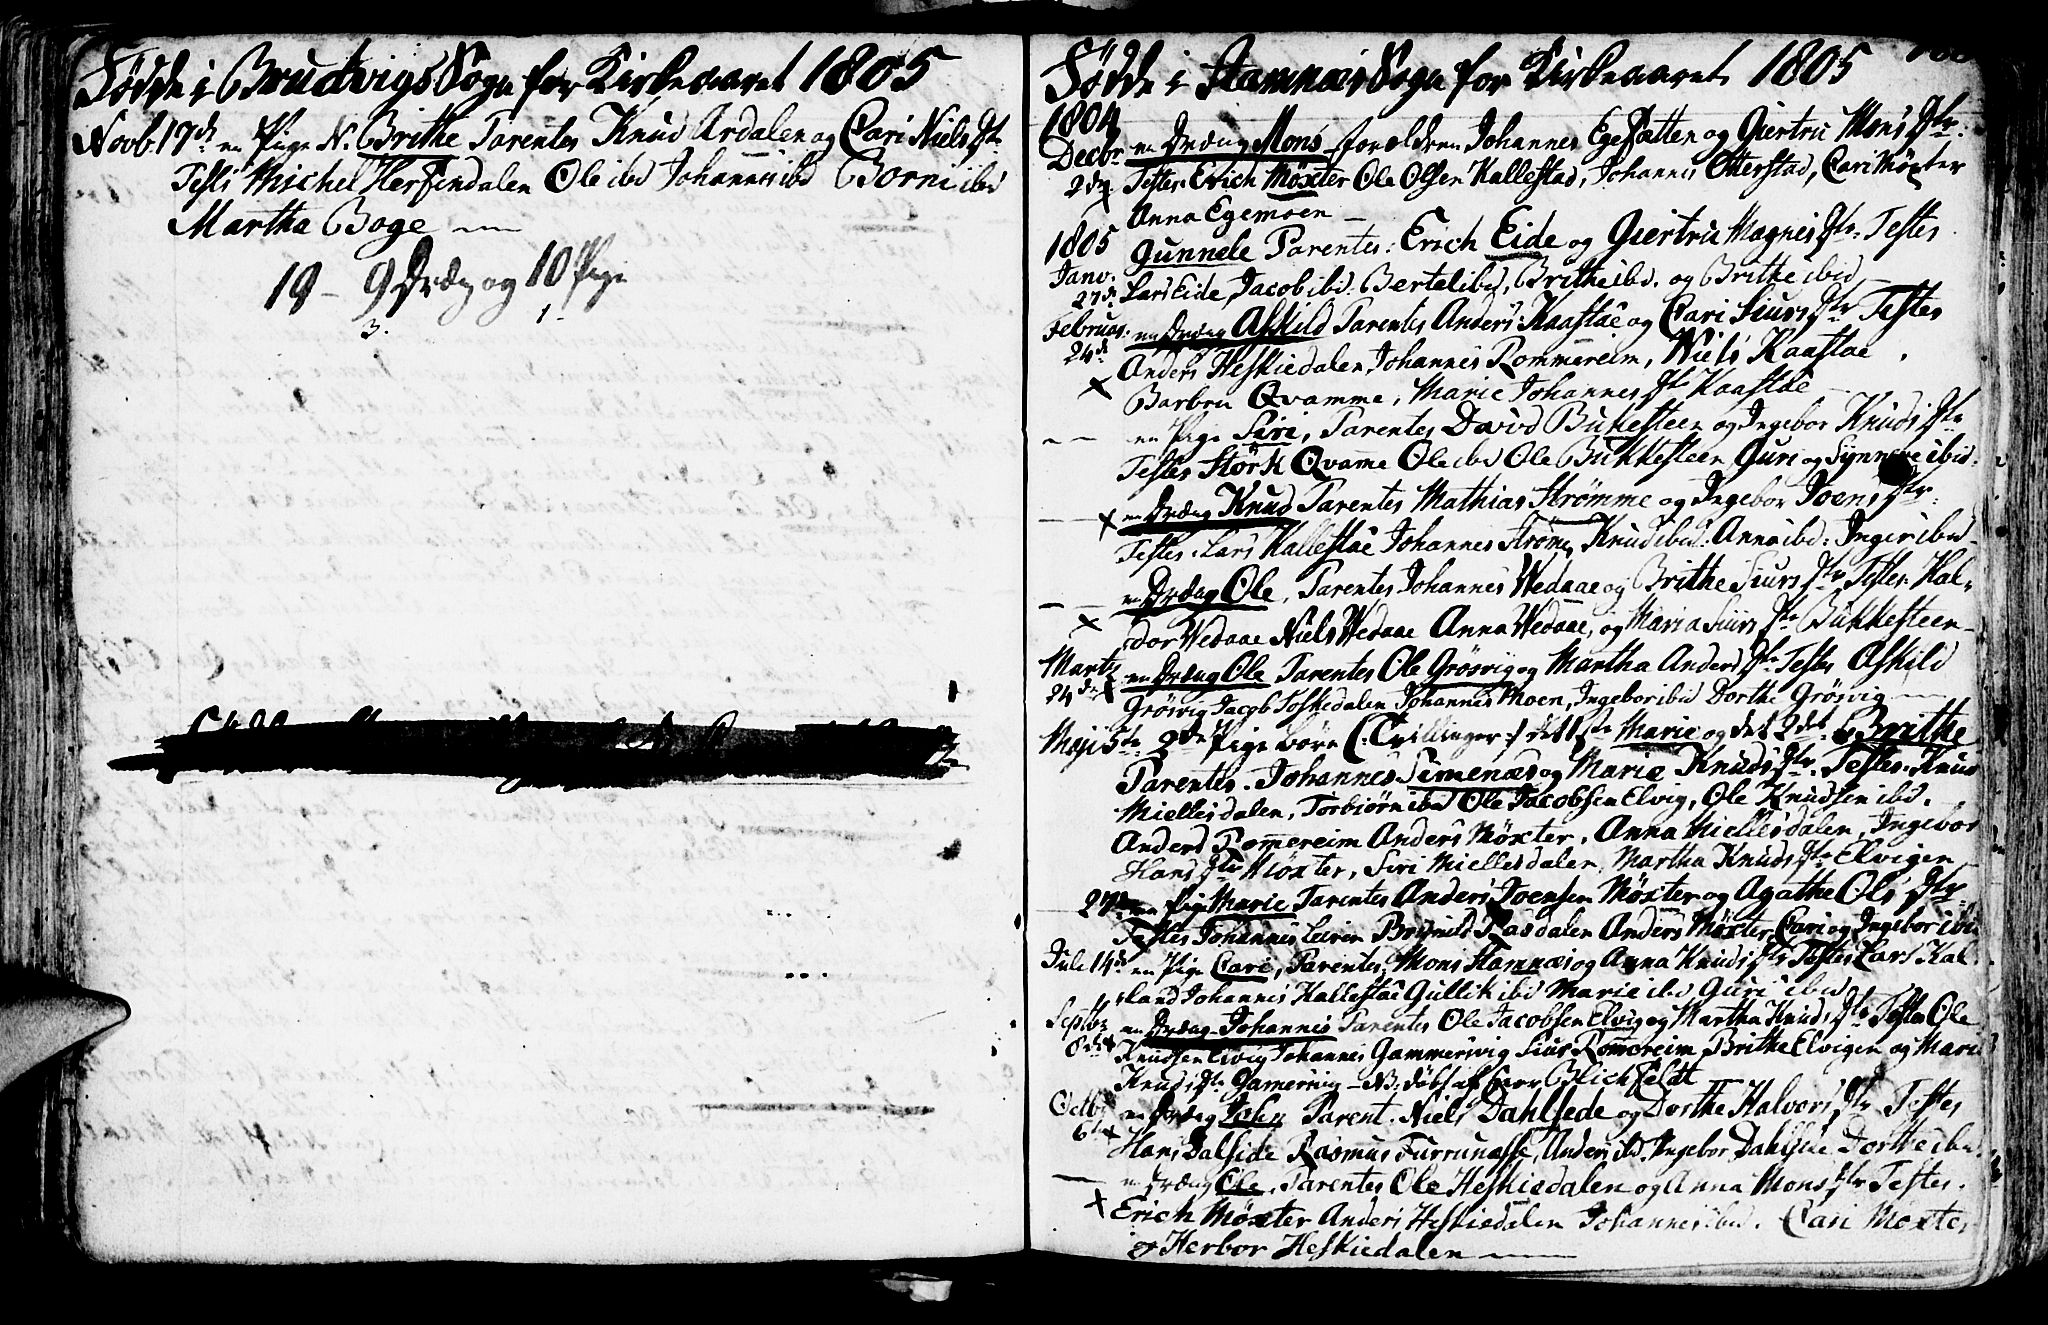 Fødde i Brudvigs Sogn for Kirkeaaret 1805
Novb. 17de en Pige N. Brithe Parentes Knud Ardalen og Cari Niels Dtr
Testes Mischel Herfindalen Ole ibd Johannes ibd Borni ibd
Martha Boge
19 - 9 Dreng og 10 Pige
3. 1
Fødde i Stamnæs Sogn for Kirkeaaret 1805
1804
Decbr en Dreng Mons forældren Johannes Egefætten og Giertru Mons Dtr.
2den Testes Erich Møxter Ole Olsen Kallestad, Johannes Otterstad, Cari Møxter
Anna Egemoen
1805 Gunnele Parentes: Erich Eide og Giertru Magnes Dtr: Testes
Janv. 27de Lars Eide, Jacob ibd. Bertel ibd, Brithe ibd. og Brithe ibid
Februar. en Dreng Askild Parentes Anders Kaastae og Cari Siurs Dtr Testes
24de Anders Heskiedalen, Johannes Rommereim, Niels Kaastae
Barbru Qvamme, Marie Johannes Dtr Kaastae
en Pige Siri, Parentes David Bukkesteen og Ingebor Knuds Dtr
Testes Størk Qvame Ole ibd Ole Bukkesteen Guri og Synneve ibid.
en Dreng Knud Parentes Mathias Strømme og Ingebor Joens Dtr.
Testes. Lars Kallestae Johannes Strøme, Knud ibid. Anna ibd: Inger ibid
en Dreng Ole, Parentes Johannes Wedaae og Brithe Siurs Dtr Testes. Hal-
dor Wedaae Niels Wedaae Anna Wedaae, og Maria Siurs Dtr Bukkesteen
Marty en Dreng Ole Parentes Ole Grøsvig og Martha Anders Dtr Testes Askild
24de Grøsvig Jacob Toskedalen Johannes Moen, Ingebor ibid Dorthe Grøsvig
Maji 5te 2de Pige børn (: Tvillinger :) det 1ste Marie og det 2det Brithe
Parentes. Johannes Simenæs og Marie Knuds Dtr. Testes. Knud
Miellesdalen, Torbiørn ibd Ole Jacobsen Elvig, Ole Knudsen ibd.
Anders Romereim Anders Møxter, Anna Miellesdalen, Ingebor
Hans Dtr Møxter, Siri Miellesdalen, Martha Knuds Dtr Elvigen
27de en Pige Marie Parentes Anders Joensen Møxter og Agatha Ols Dtr
Testes Johannes Leiren Brynild Rasdalen Anders Møxter Cari og Ingebor ibid
Juli 14de en Pige Cari, Parentes, Mons Stamnæs og Anna Knuds Dtr Testes Lars Kal-
land Johannes Kallestae Gullik ibid Marie ibd Guri ibid
Septbr en Dreng Johannes Parentes Ole Jacobsen Elvig og Martha Knuds Dtr Testes Ole
8de Knudsen Elvig Johannes Gammersvig Siur Romereim Brithe Elvigen og Marie
Knuds Dtr Gamersvig - NB: døbt af Herr Blichfeldt
Octbr en Dreng John Parent. Niels Dahlsede og Dorthe Halvors Dtr Testes
6te Hans Dalside Rasmus Furrunæsse, Anders ibd. Ingebor Dahlside Dorthe ibd.
en Dreng Ole, Parentes Ole Heskiedalen og Anna Mons Dtr Testes.
Erich Møxter Anders Heskiedalen Johannes ibd. Cari Møxter
og Herbor Heskiedalen